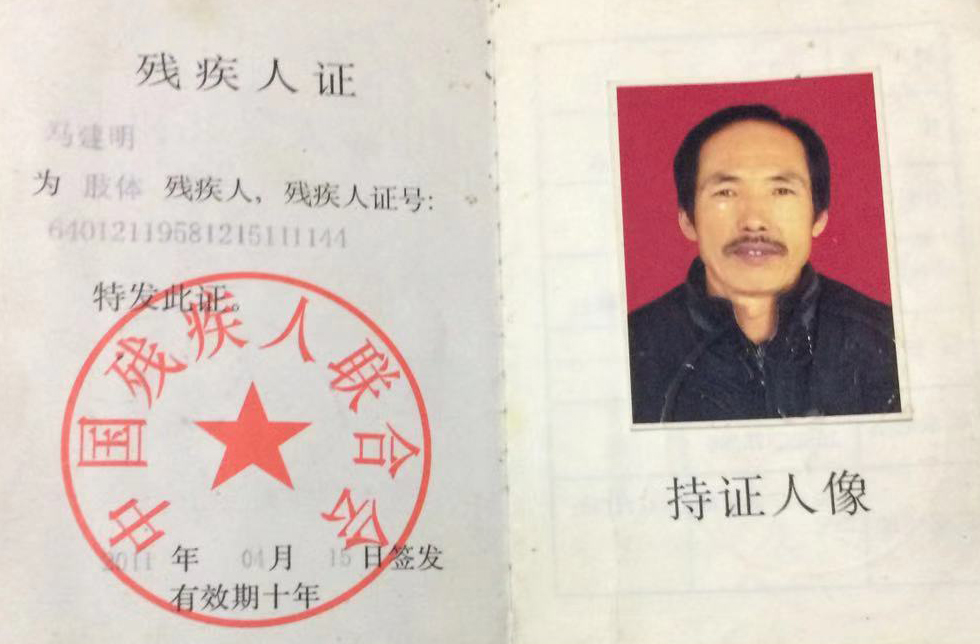 残疾人证
冯建明
为 肢体 残疾人，残疾人证号：
64012119581215111144
特发此证。
中国残疾人联合会
2011 年 04 月 15 日签发
有效期十年
持证人像